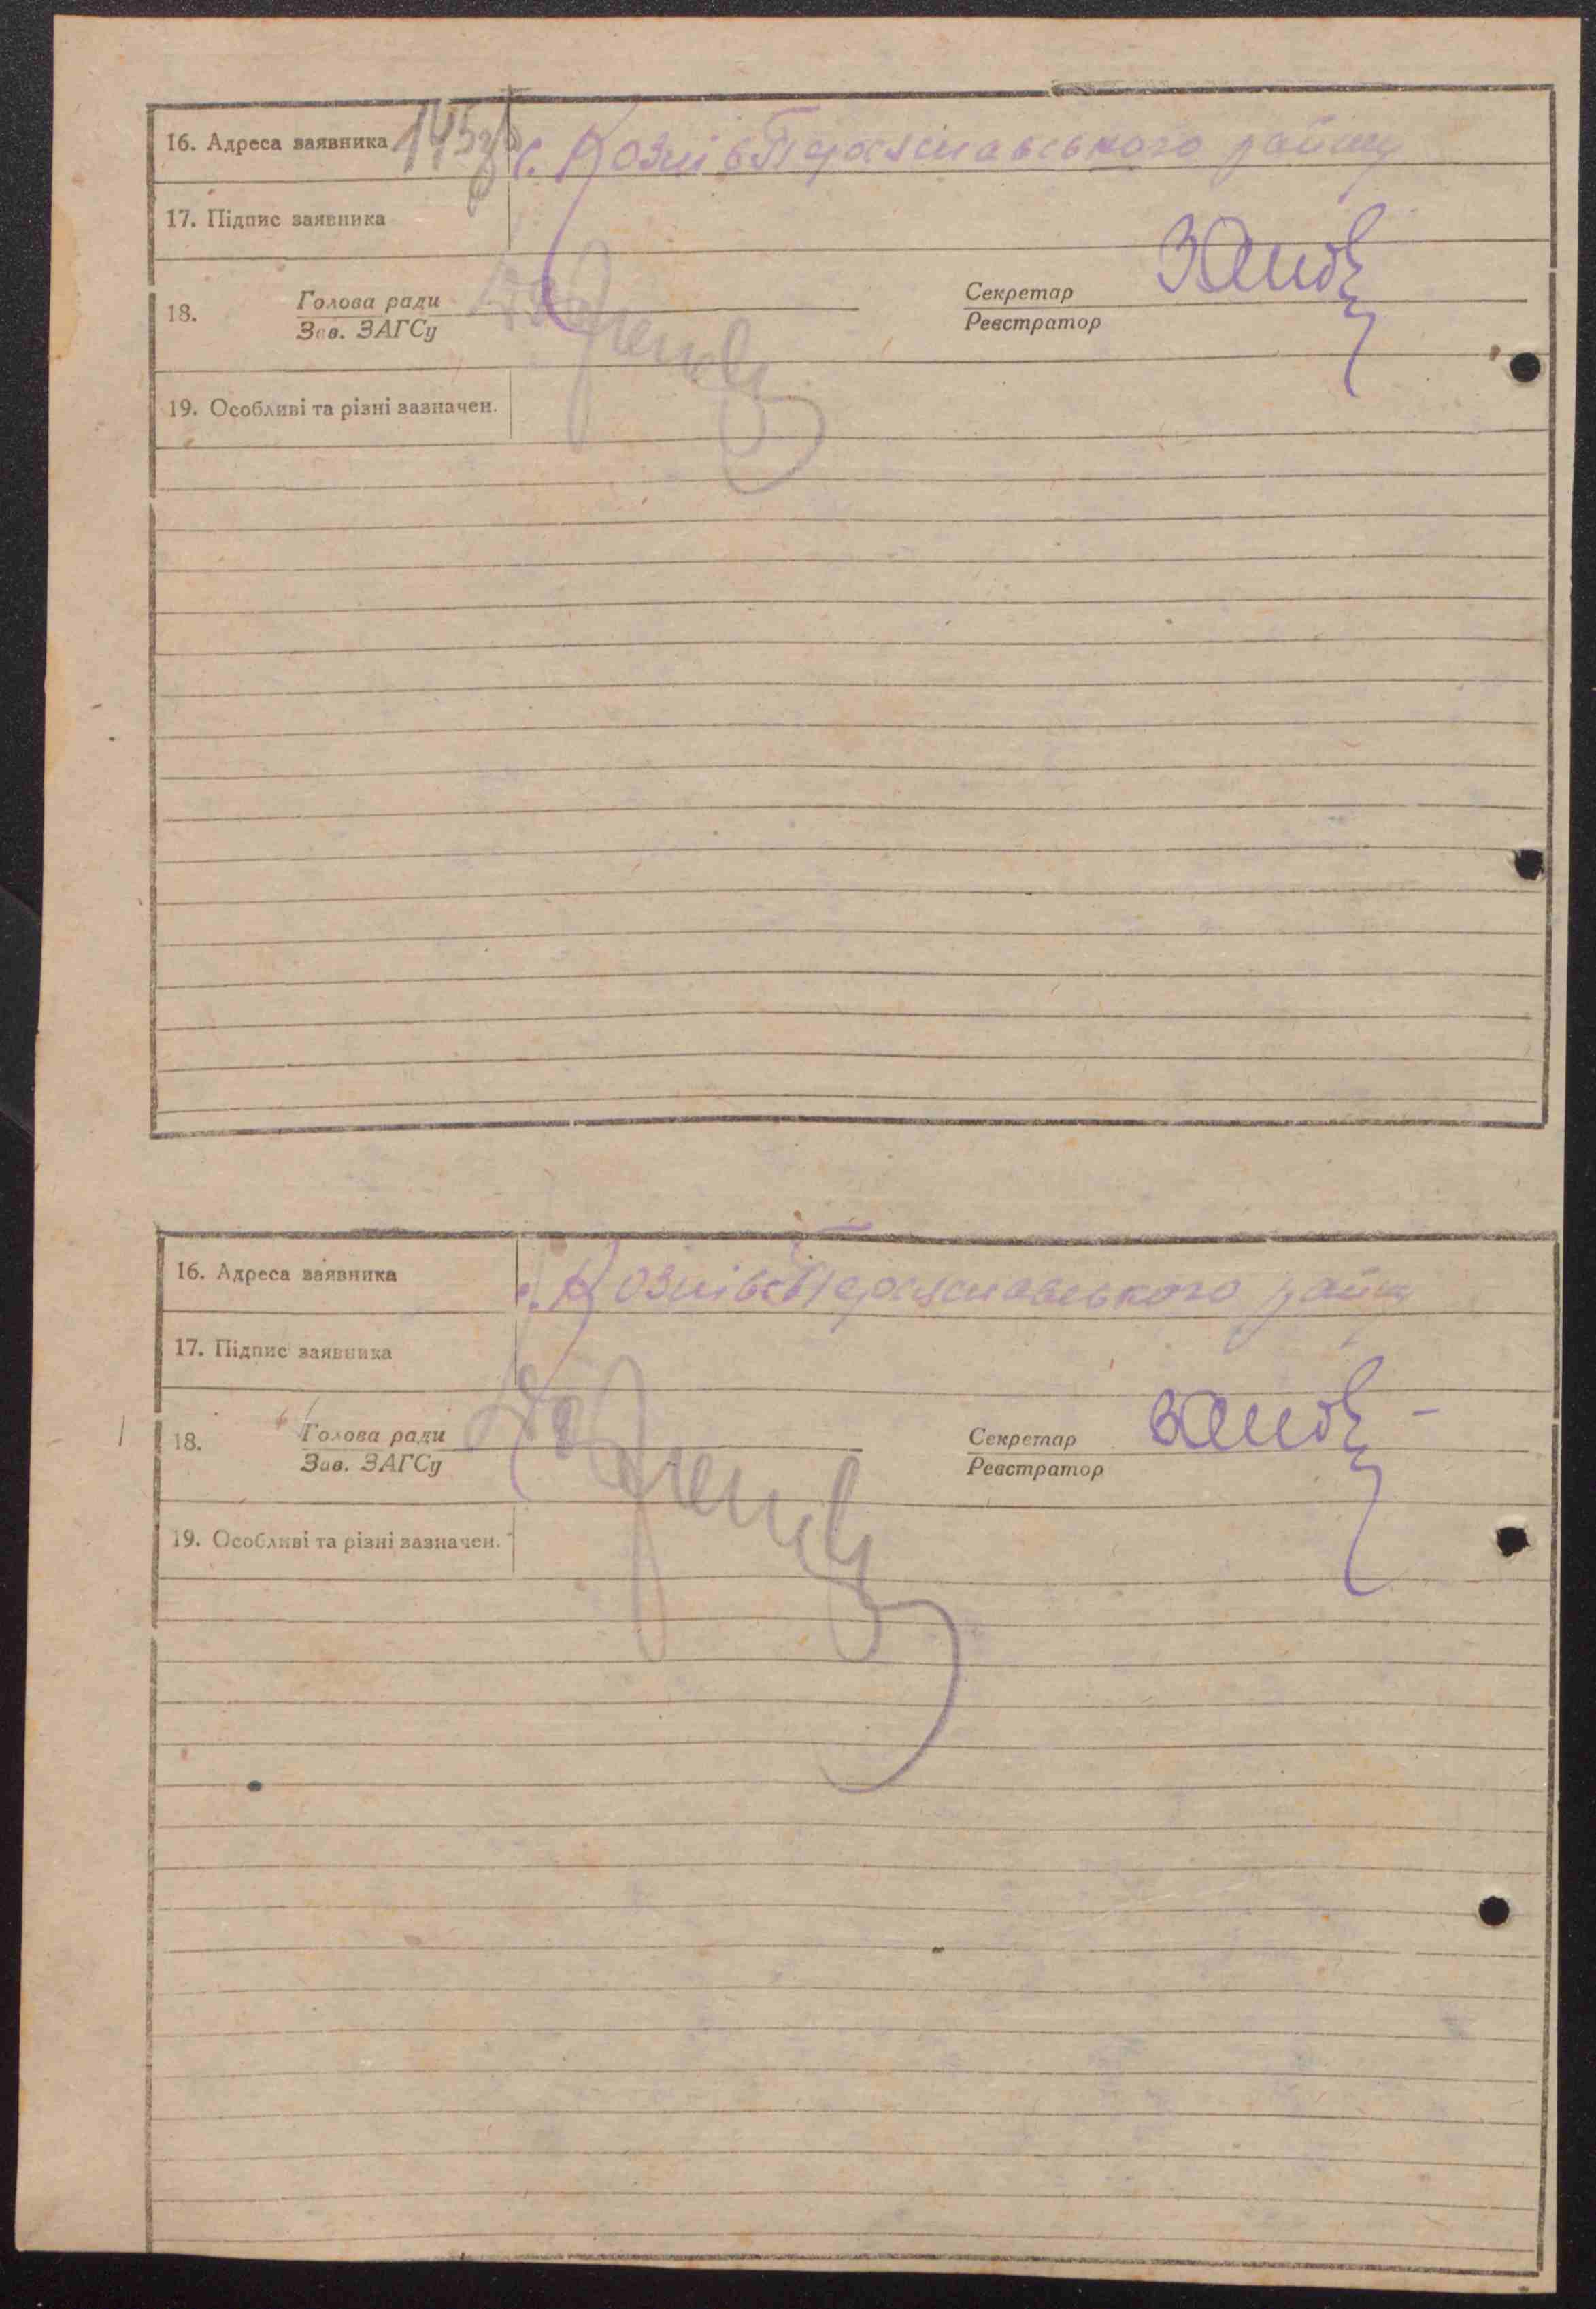 16. Адреса заявника 145зв с. Козлів Переяславського району
17. Підпис заявника
18. Голова ради Секретар
Зав. ЗАГСу Реєстратор
19. Особливі та різні зазначен.
16. Адреса заявника с. Козлів Переяславського району
17. Підпис заявника
18. Голова ради Секретар
Зав. ЗАГСу Реєстратор
19. Особливі та різні зазначен.